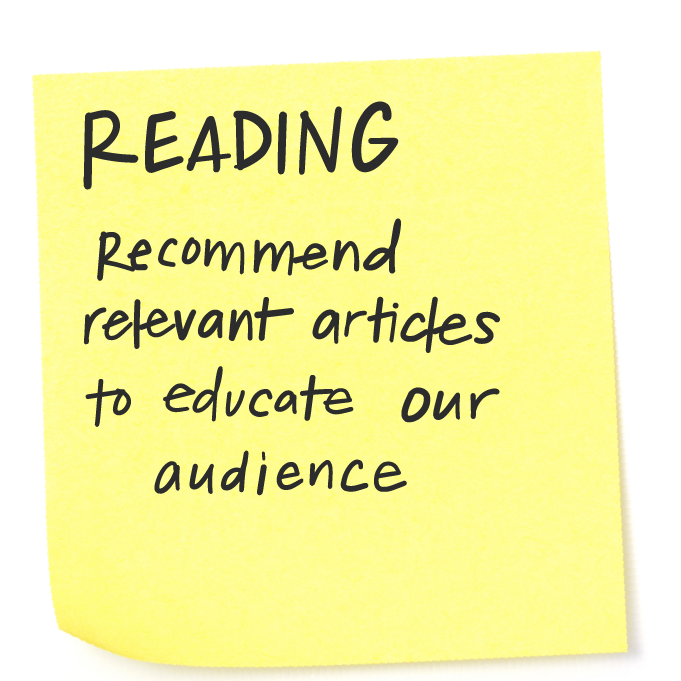 READING
Recommend
relevant articles
to educate our
audience